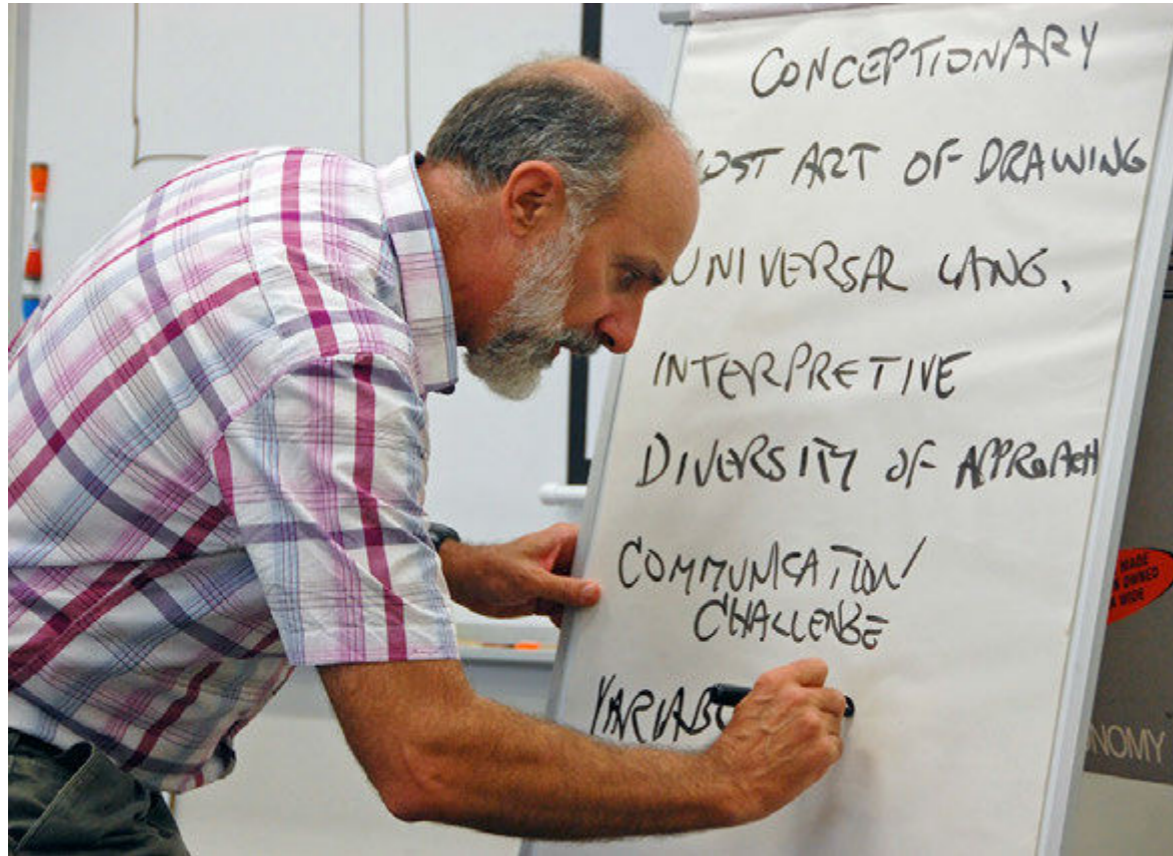 CONCEPTIONARY
OST ART OF DRAWING
UNIVERSAL LANG.
INTERPRETIVE
DIVERSITY OF APPROACH
COMMUNICATION/
CHALLENGE
VARIAB
MADE
OWNED
WIDE
NOMY